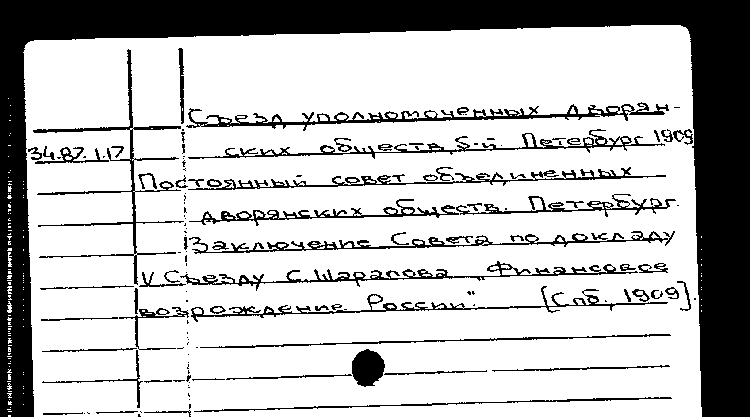 Съезд уполномоченных дворян-
34.87.1.17 ских обществ, 5-й Петербург 1909
Постоянный совет объединенных
дворянских обществ. Петербург.
Заключение Совета по докладу
V Съезду С. Шарапова „Финансовое
возрождение России" [Спб, 1909].